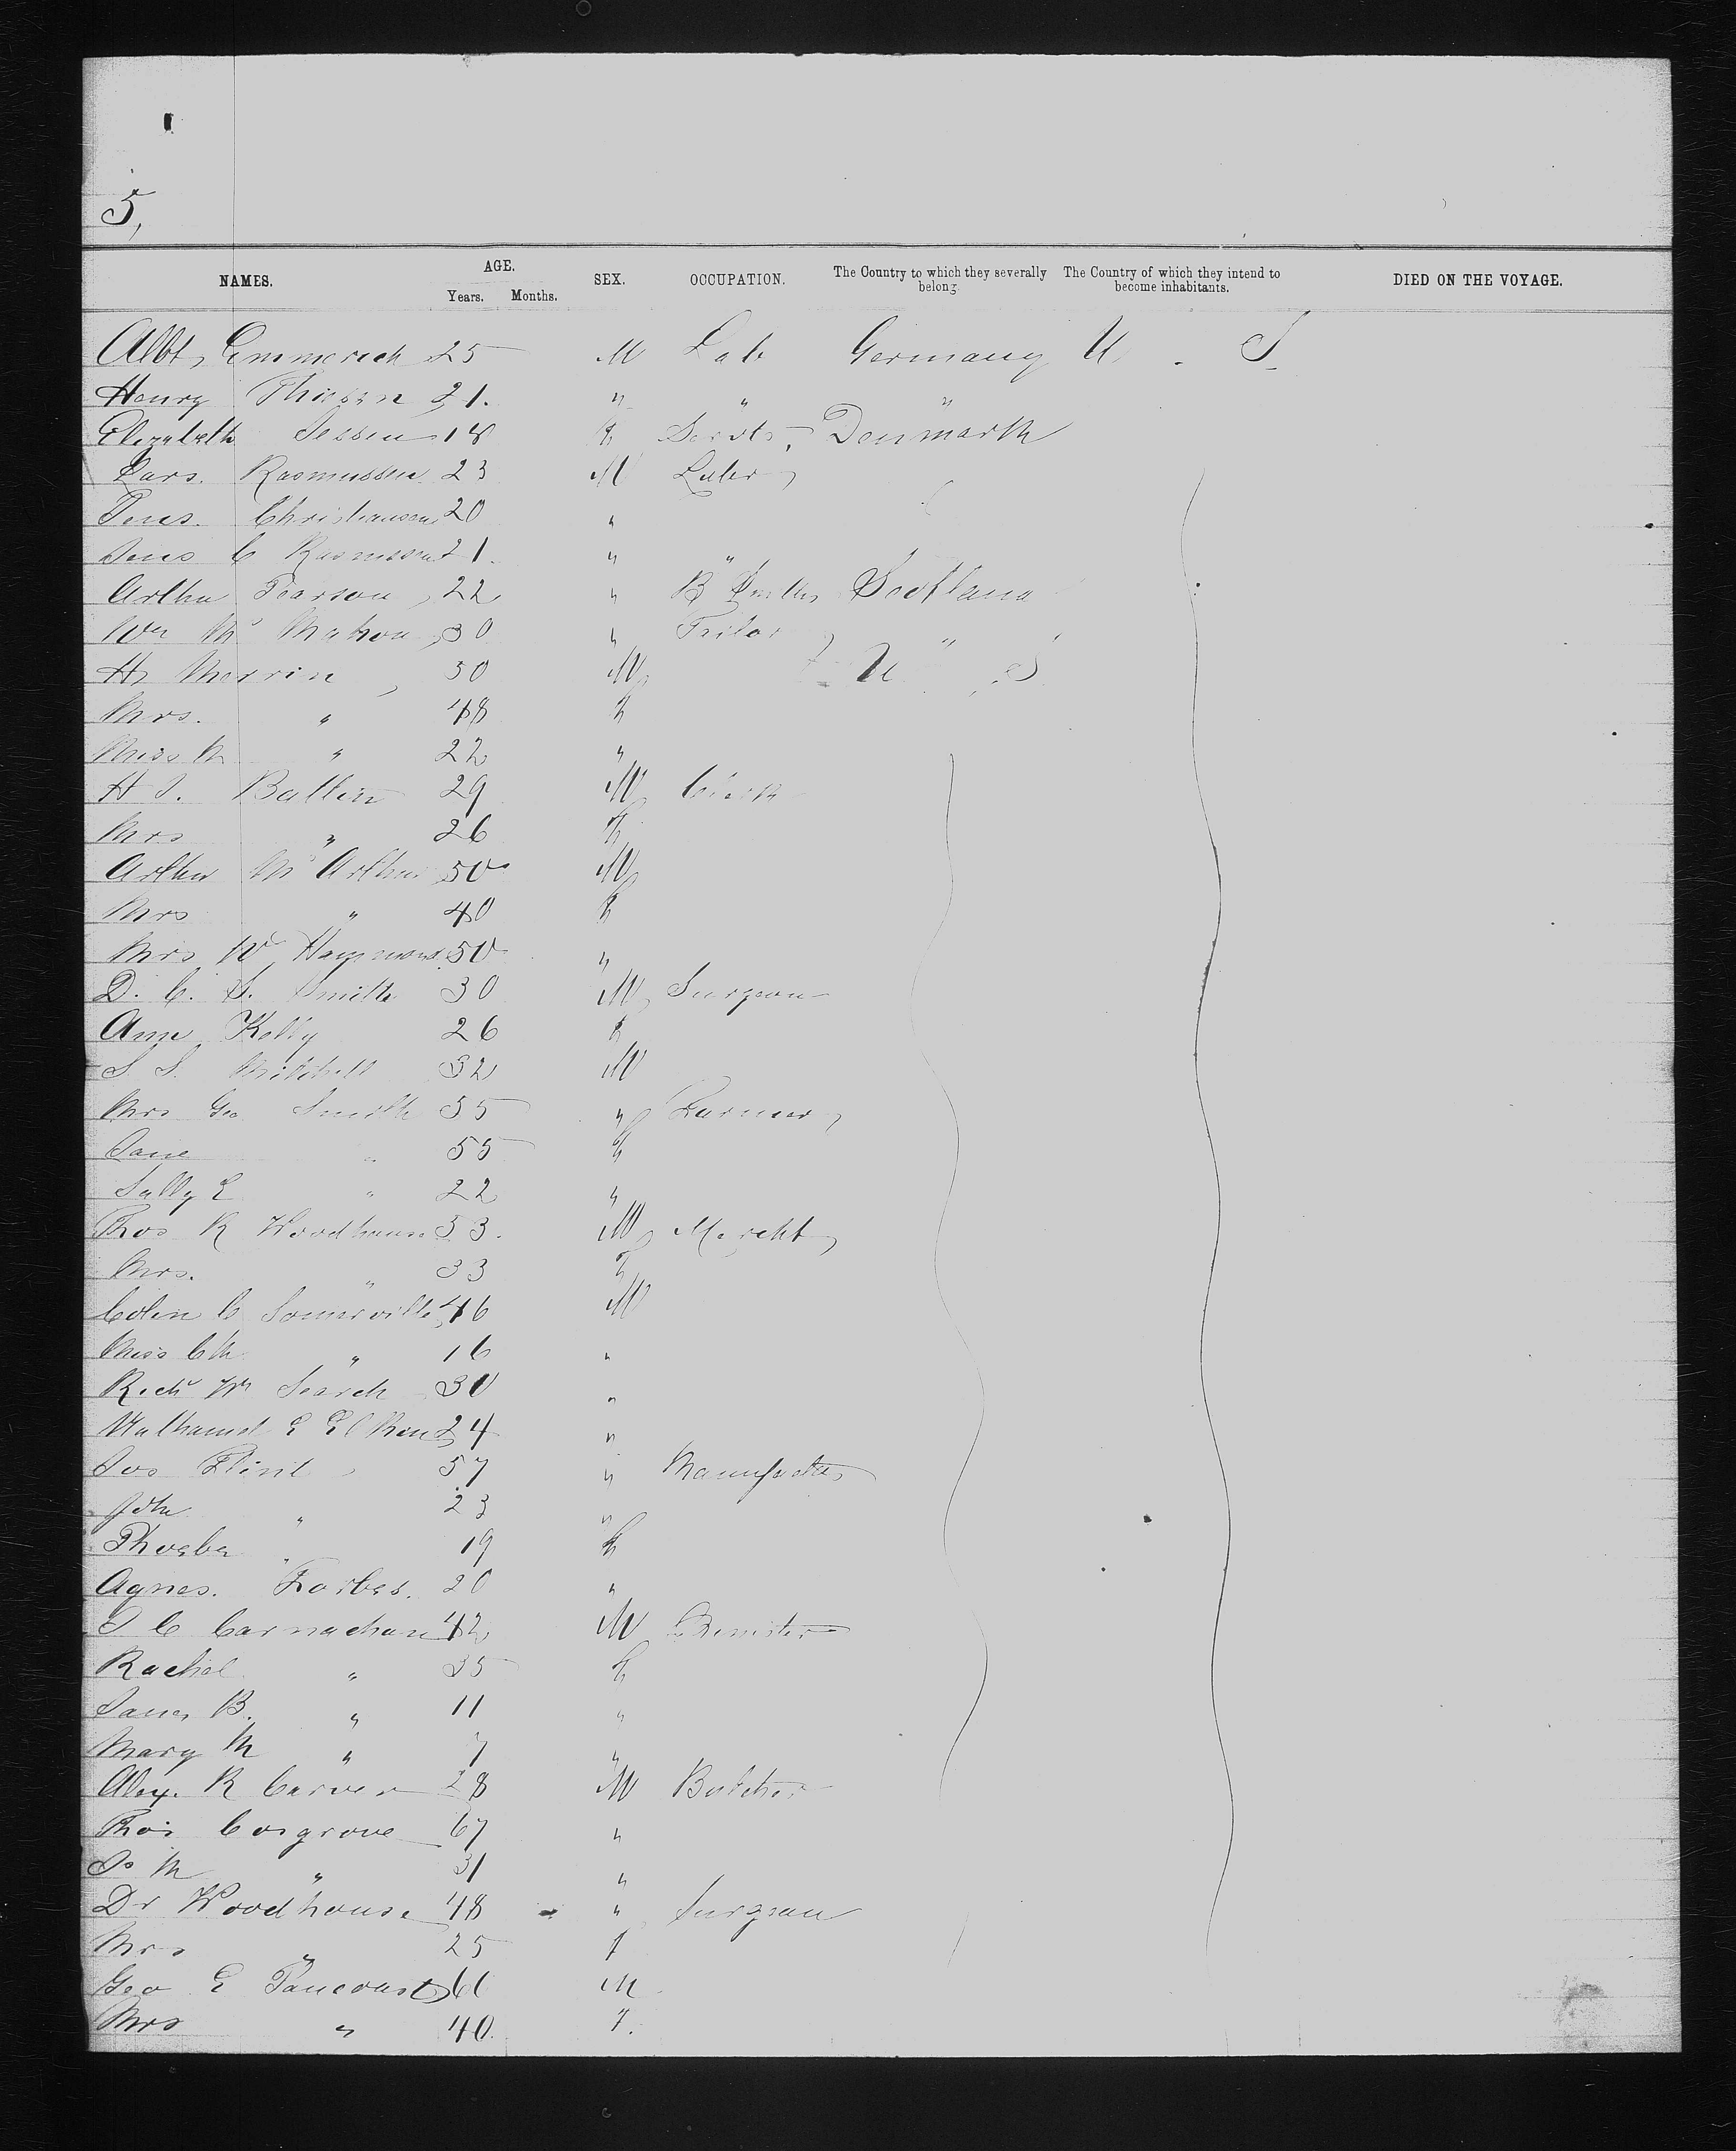 5,
NAMES. AGE. Years. Months. SEX. OCCUPATION. The Country to which they severally belong. The Country of which they intend to become inhabitants. DIED ON THE VOYAGE.
Albt, Emmerich 25 M Lab Germany U. S.
Henry Thiesen 21. " " "
Elizabeth Jessen 18 F Servts, Denmark
Lars. Rasmussen 23 M Labr,
Jens. Christiansen 20 "
Jens C Rasmussen 21. " "
Arthur Pearson, 22 " B Smith, Scotland
Wm Mc Mahon, 30 " "
H, Merrin, 50 M, U S
Mrs. " 48 F
Miss M " 22 "
H J. Ballin 29 M, Clerk
Mrs " 26 F
Arthur Mc Arthur 50 M,
Mrs " 40 F
Mrs W Hammond 50 "
D. C. S. Smith 30 M, Surgeon
Ann Kelly 26 F
S. S. Mitchell 32 M
Mrs Geo Smith 55 " Farmer,
Jane " 55 F
Sally E " 22 "
Thos R Woodhouse 53. M, Mercht,
Mrs. " 33 F
Colin C Somerville, 46 M
Miss C M " 16 "
Richd Wm Search 30 "
Nathaniel E Elkin 24 "
Jos Flint 57 "
John " 23 "
Phoebe " 19 F
Agnes. Forbes. 20 "
J C Carnachan 42 M
Rachel " 35 F
B. " 11 "
Mary M " 7 "
Alex. R Carver 28 M Butcher
Thos Cosgrove 67 "
Jo M " 31 "
Dr Woodhouse 48 " Surgeon
Mrs " 25 f
Geo E Pancoast 61 M
Mrs " 40. f.